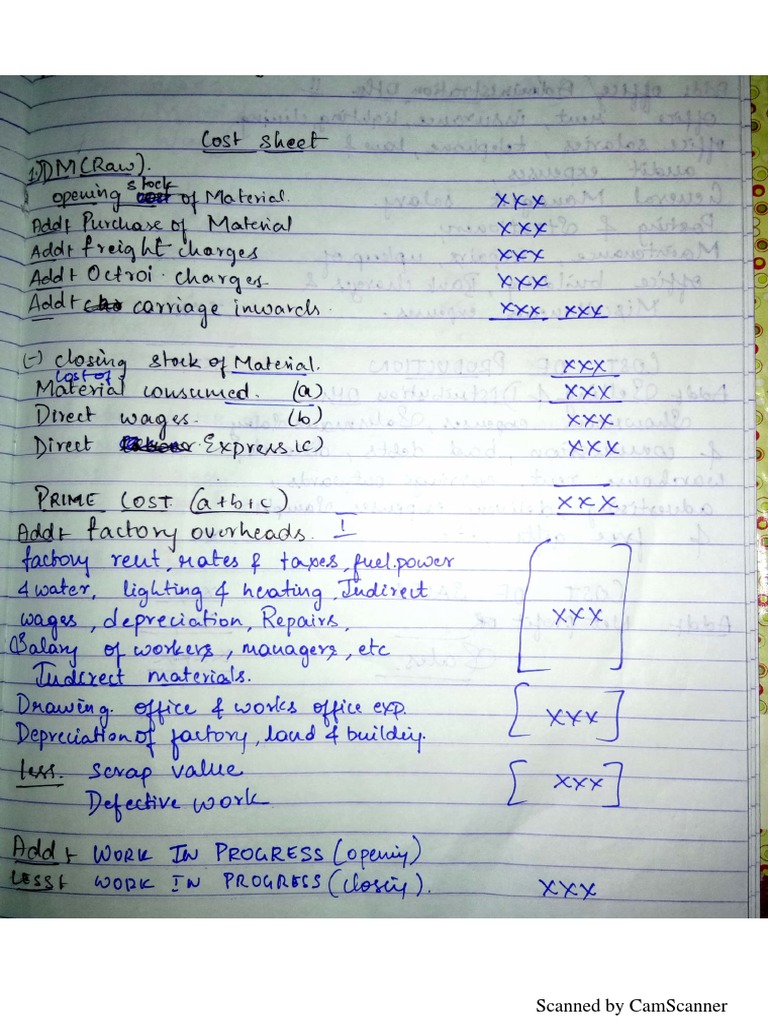 Cost Sheet
1) DM (Raw).
opening stock of Material. xxx
Add+ Purchase of Material xxx
Add+ freight charges xxx
Add+ Octroi charges xxx
Add+ carriage inwards. xxx xxx
(-) closing stock of Material. xxx
cost of
Material consumed. (a) xxx
Direct wages. (b) xxx
Direct Express (c) xxx
PRIME COST (a+b+c) xxx
Add+ factory overheads. I
factory rent, rates & taxes, fuel.power
& water, lighting & heating, Indirect
wages, depreciation, Repairs, xxx
Salary of workers, managers, etc
Indirect materials.
Drawing office & works office exp. xxx
Depreciation of factory, land & building.
less. scrap value xxx
Defective work
Add+ WORK IN PROGRESS (opening)
LESS+ WORK IN PROGRESS (closing). xxx
Scanned by CamScanner